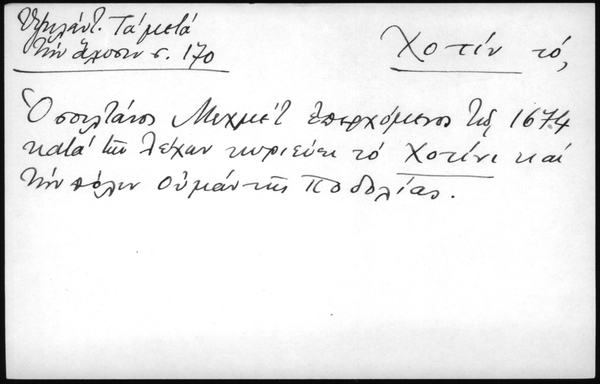 Ὑψηλάντ. Τὰ μετὰ
τὴν ἅλωσιν σ. 170
Χοτὶν τό,
Ὁ σουλτάνος Μεχμὲτ ἐπερχόμενος τῷ 1674
κατὰ τῶν Λέχων κυριεύει τὸ Χοτίνι καὶ
τὴν πόλιν Οὐμὰν τῆς Ποδολίας.